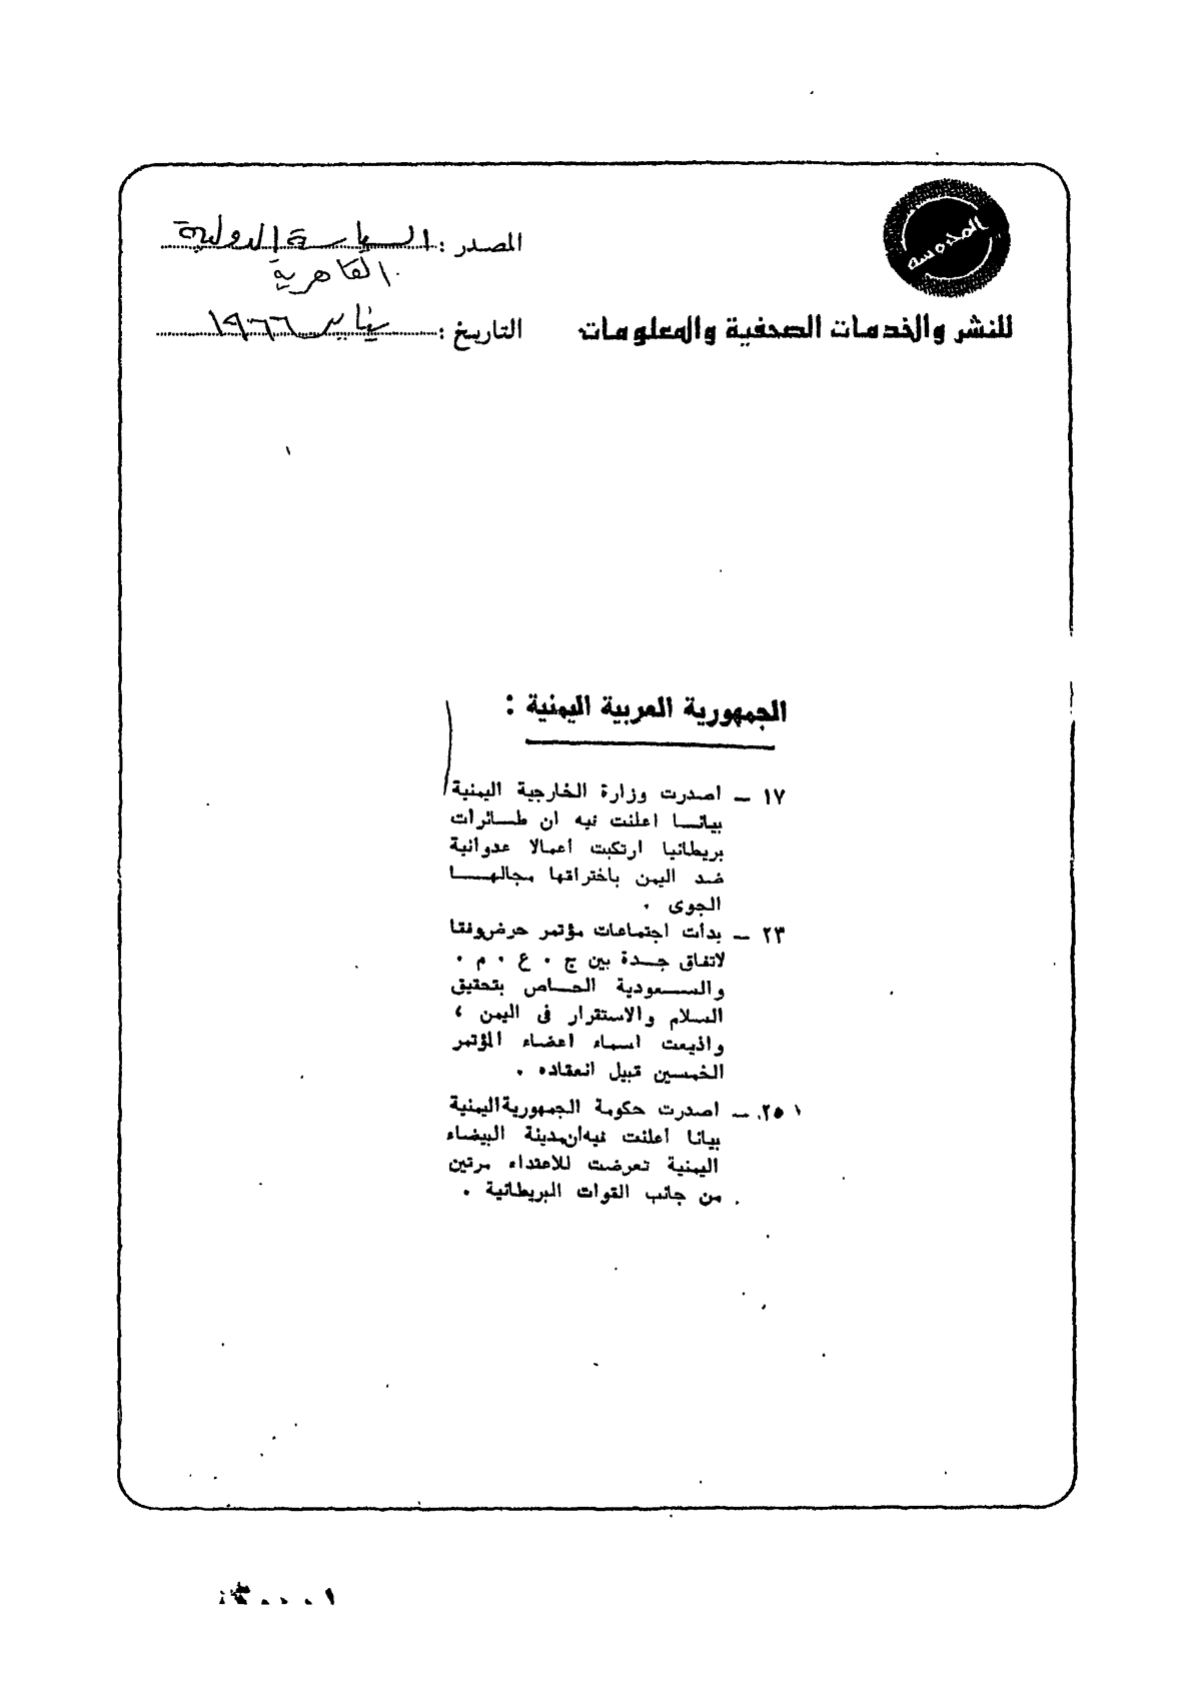 المحروسة
للنشر والخدمات الصحفية والمعلومات
المصدر : السياسة الدولية
القاهرية
التاريخ : يناير ١٩٦٦
الجمهورية العربية اليمنية :
١٧ ــ اصدرت وزارة الخارجية اليمنية
بيانــا اعلنت فيه ان طــائرات
بريطانيا ارتكبت أعمالا عدوانية
ضد اليمن باختراقها مجالهــــا
الجوى .
٢٣ ــ بدأت اجتماعات مؤتمر حرض وفقا
لاتفاق جــدة بين ج . ع . م .
والســـعودية الخــاص بتحقيق
السلام والاستقرار فى اليمن ،
واذيعت اسماء اعضاء المؤتمر
الخمسين قبيل انعقاده .
٢٥ ــ اصدرت حكومة الجمهورية اليمنية
بيانا أعلنت فيه أن مدينة البيضاء
اليمنية تعرضت للاعتداء مرتين
من جانب القوات البريطانية .